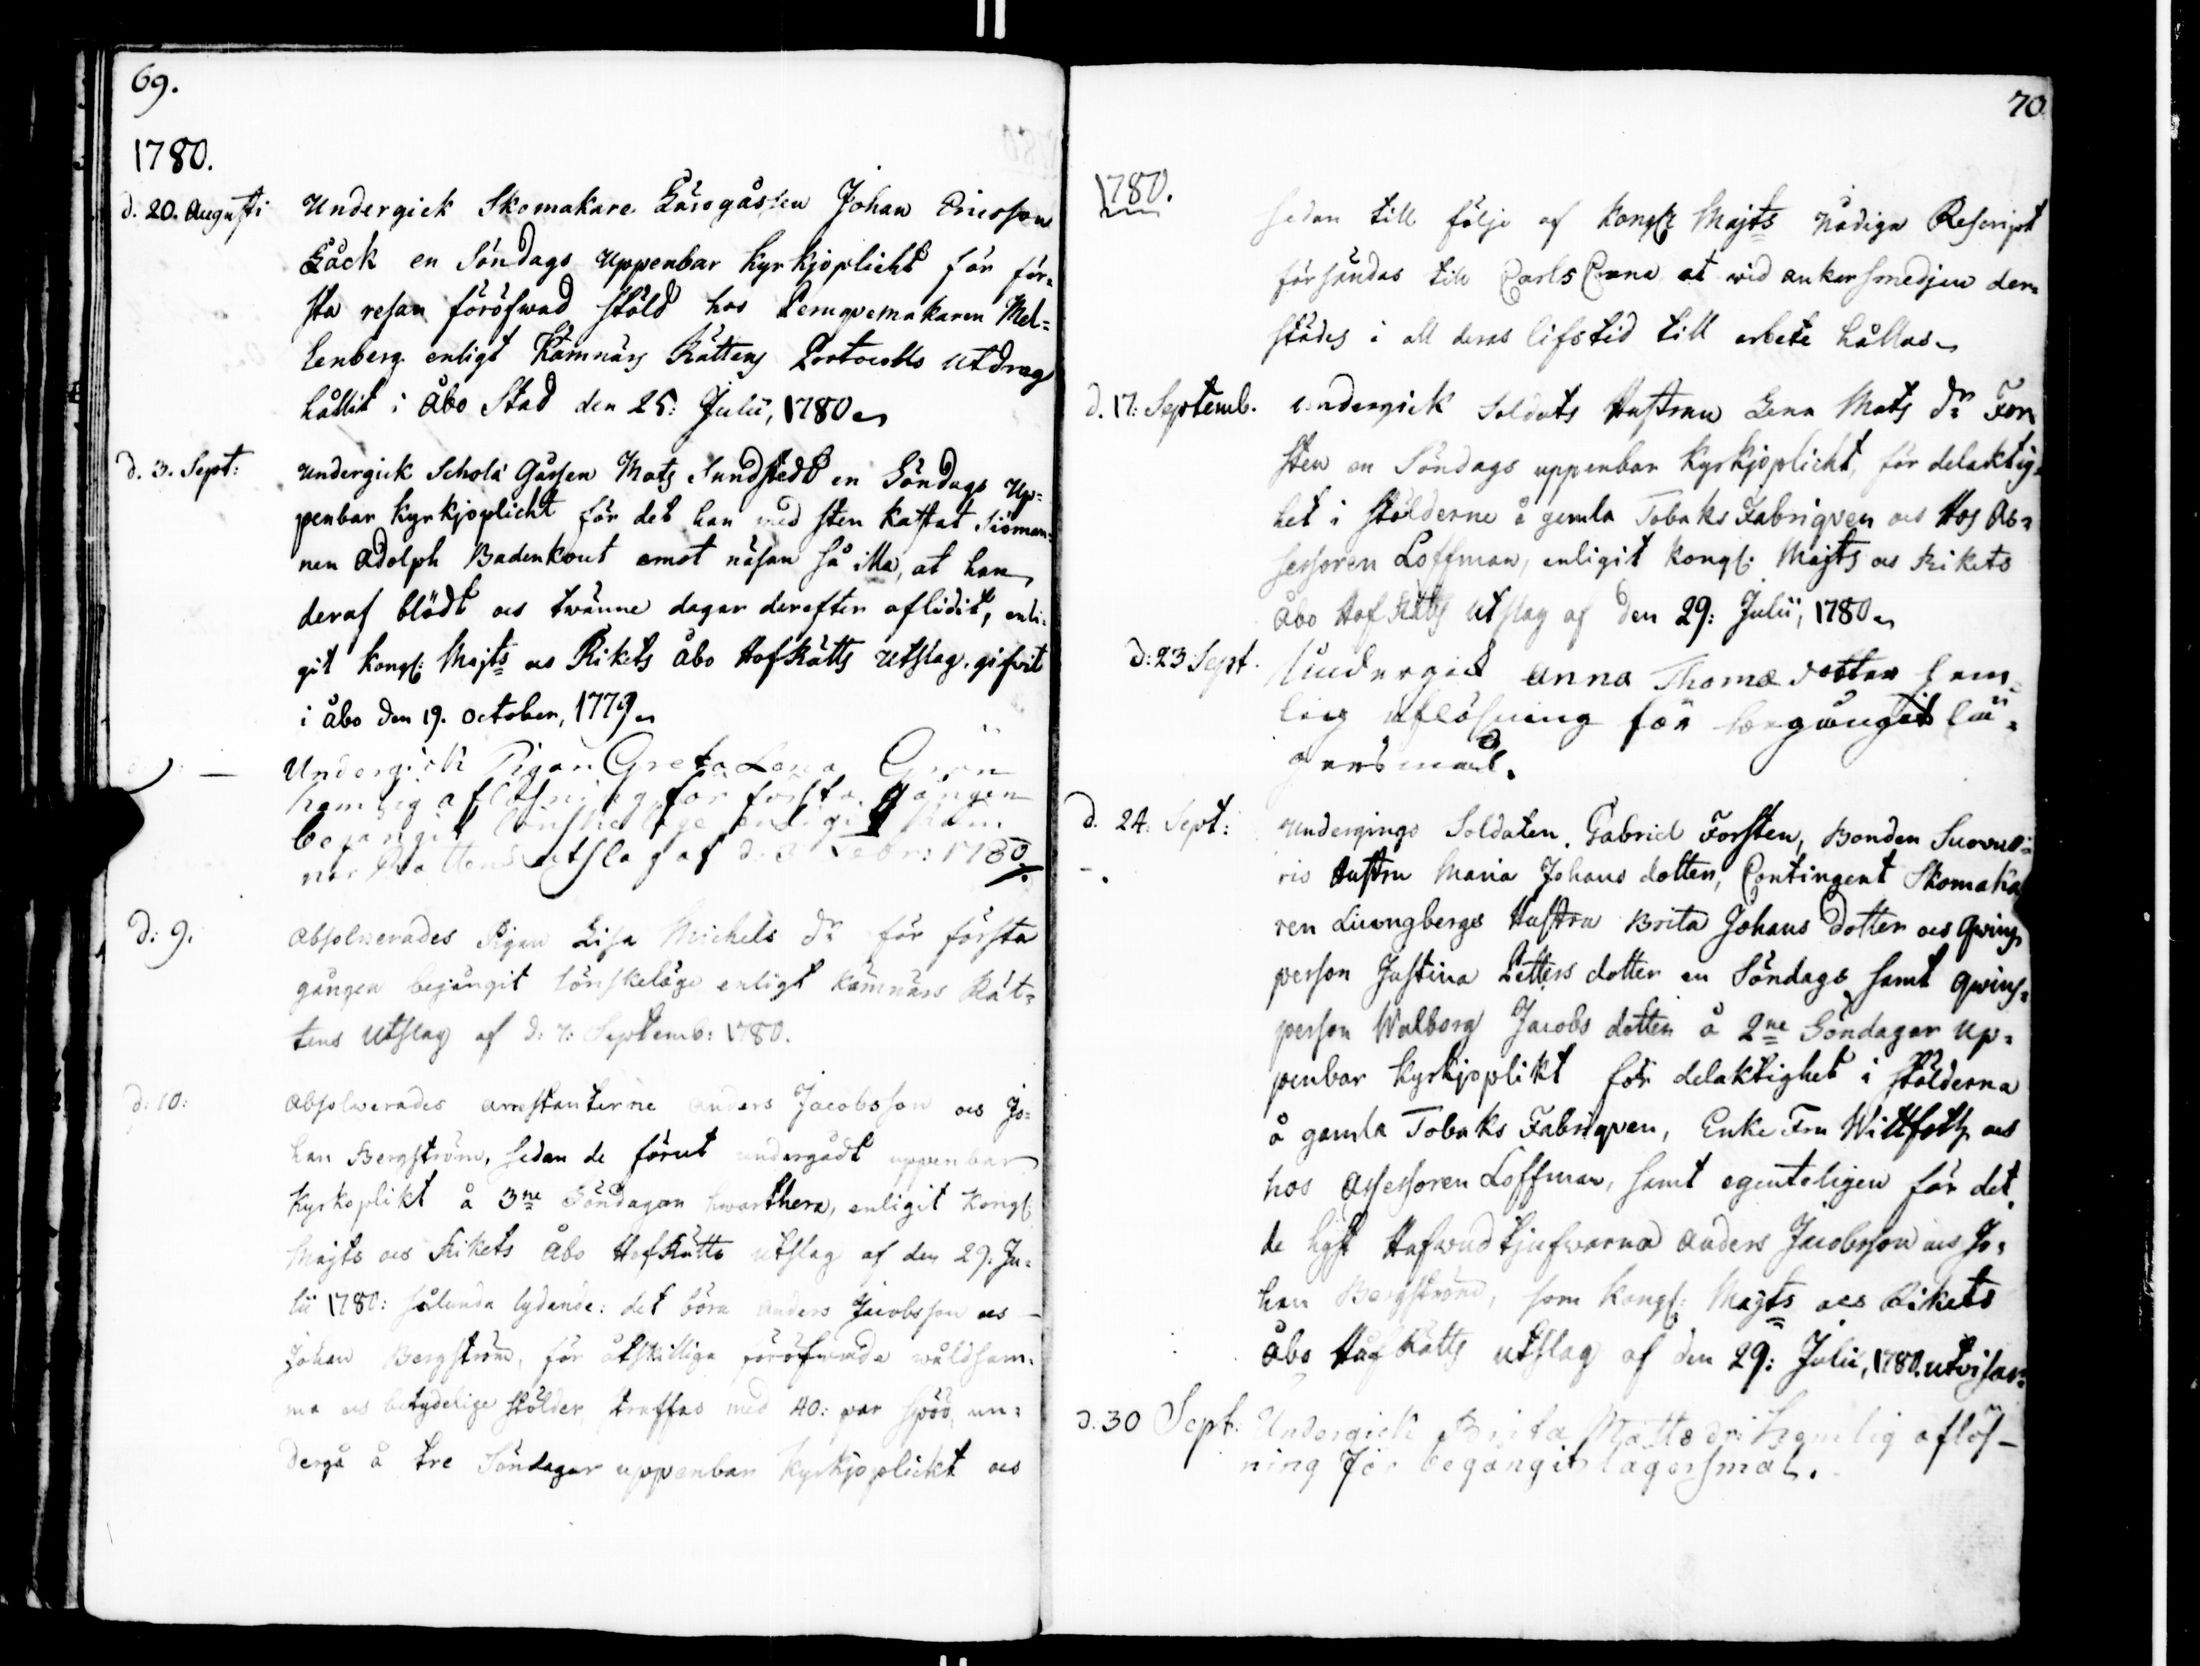 69.
1780.
d. 20. Augusti Undergick Skomakare Lärogåssen Johan Ericsson
Bäck en Söndags Uppenbar Kyrkjoplicht för för-
sta resan föröfwad stöld hos Peruqvemakaren Mel-
lenberg enligt Kämnärs Rättens Protocolls Utdrag
hållit i Åbo Stad den 25: Julii, 1780
d. 3. Sept: Undergick Schola Gåssen Mats Sundstedt en Söndags Up-
penbar Kyrkjoplicht för det han med sten kastat Siöman-
nen Adolph Badenkout emot näsan så illa, at han
deraf blödt och twänne dagar derefter aflidit, enli-
git Kongl: Majts och Rikets Åbo HofRätts Utslag, gifwit
i Åbo den 19. October, 1779
— Undergick Pigan Greta Lena Grön
hemlig aflösning för första gången
begångit lönskeläge enligit Käm-
när Rättens utslag af d: 3 Febr: 1780
d: 9. Absolverades Pigan Lisa Michels dr för första
gången begångit lönskeläge enligt Kämnärs Rät-
tens Utslag af d: 7: Septemb: 1780.
d: 10: Absolverades arrestanterne Anders Jacobsson och Jo-
han Bergström, sedan de förut undergådt uppenbar
Kyrkoplikt å 3ne Söndagar hwarthera, enligit Kongl
Majts och Rikets Åbo HofRätts utslag af den 29. Ju-
lii 1780: sålunda lydande: det böra Anders Jacobsson och
Johan Bergström, för åtskillige föröfwade wåldsam-
ma och betydelige stölder, straffas med 40: par spöö, un-
dergå å tre Söndagar uppenbar Kyrkjoplickt och
70
1780.
sedan till följe af Kongl Majts Nådiga Rescript
försändas till CarlsCrona at wid ankarsmedjen der-
städes i all deras lifstid till arbete hållas
d. 17: Septemb. Undergick Soldats Hustrun Lena Mats dr For-
sten en Söndags uppenbar Kyrkjoplicht, för delaktig-
het i stölderne å gamla Tobaks Fabriqven och Hos As-
sessoren Loffman, enligit Kongl: Majts och Rikets
Åbo HofRätts Utslag af den 29: Julii, 1780
d: 23 Sept. Undergick Anna Thomæ dotter hem-
lig aflösning för begångit lä-
gersmål.
d. 24: Sept: Undergingo Soldaten Gabriel Forsten, Bonden
ris Hustru Maria Johans dotter, Contingent Skomaka
ren Liungbergs Hustru Brita Johans dotter och Qwins
person Justina Petters dotter en Söndags samt Qwins-
person Walborg Jacobs dotter å 2ne Söndagar up-
penbar Kyrkjoplikt för delaktighet i stölderna
å gamla Tobaks Fabriqven, Enke Fru Wittfoth och
hos Assessoren Loffman, samt egenteligen för det
de hyst Hufwudtjufwarna Anders Jacobsson och Jo-
han Bergström, som Kongl: Majts och Rikets
Åbo HofRätts utslag af den 29: Julii, 1780. utvisar
d: 30 Sept: Undergick Brita Matts dr: hemlig aflös-
ning för begångit lägersmål.